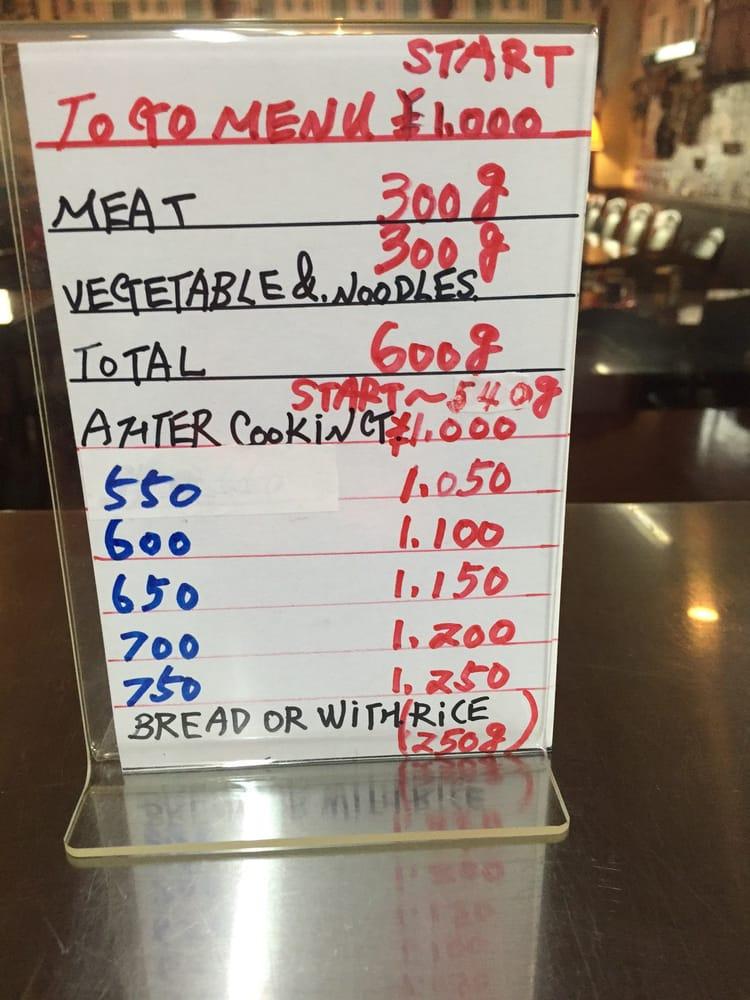 START
TO GO MENU ¥1.000
MEAT 300g
300g
VEGETABLE &. NOODLES
TOTAL 600g
START~540g
AFTER COOKING ¥1.000
550 1.050
600 1.100
650 1.150
700 1.200
750 1.250
BREAD OR WITH RICE
(250g)